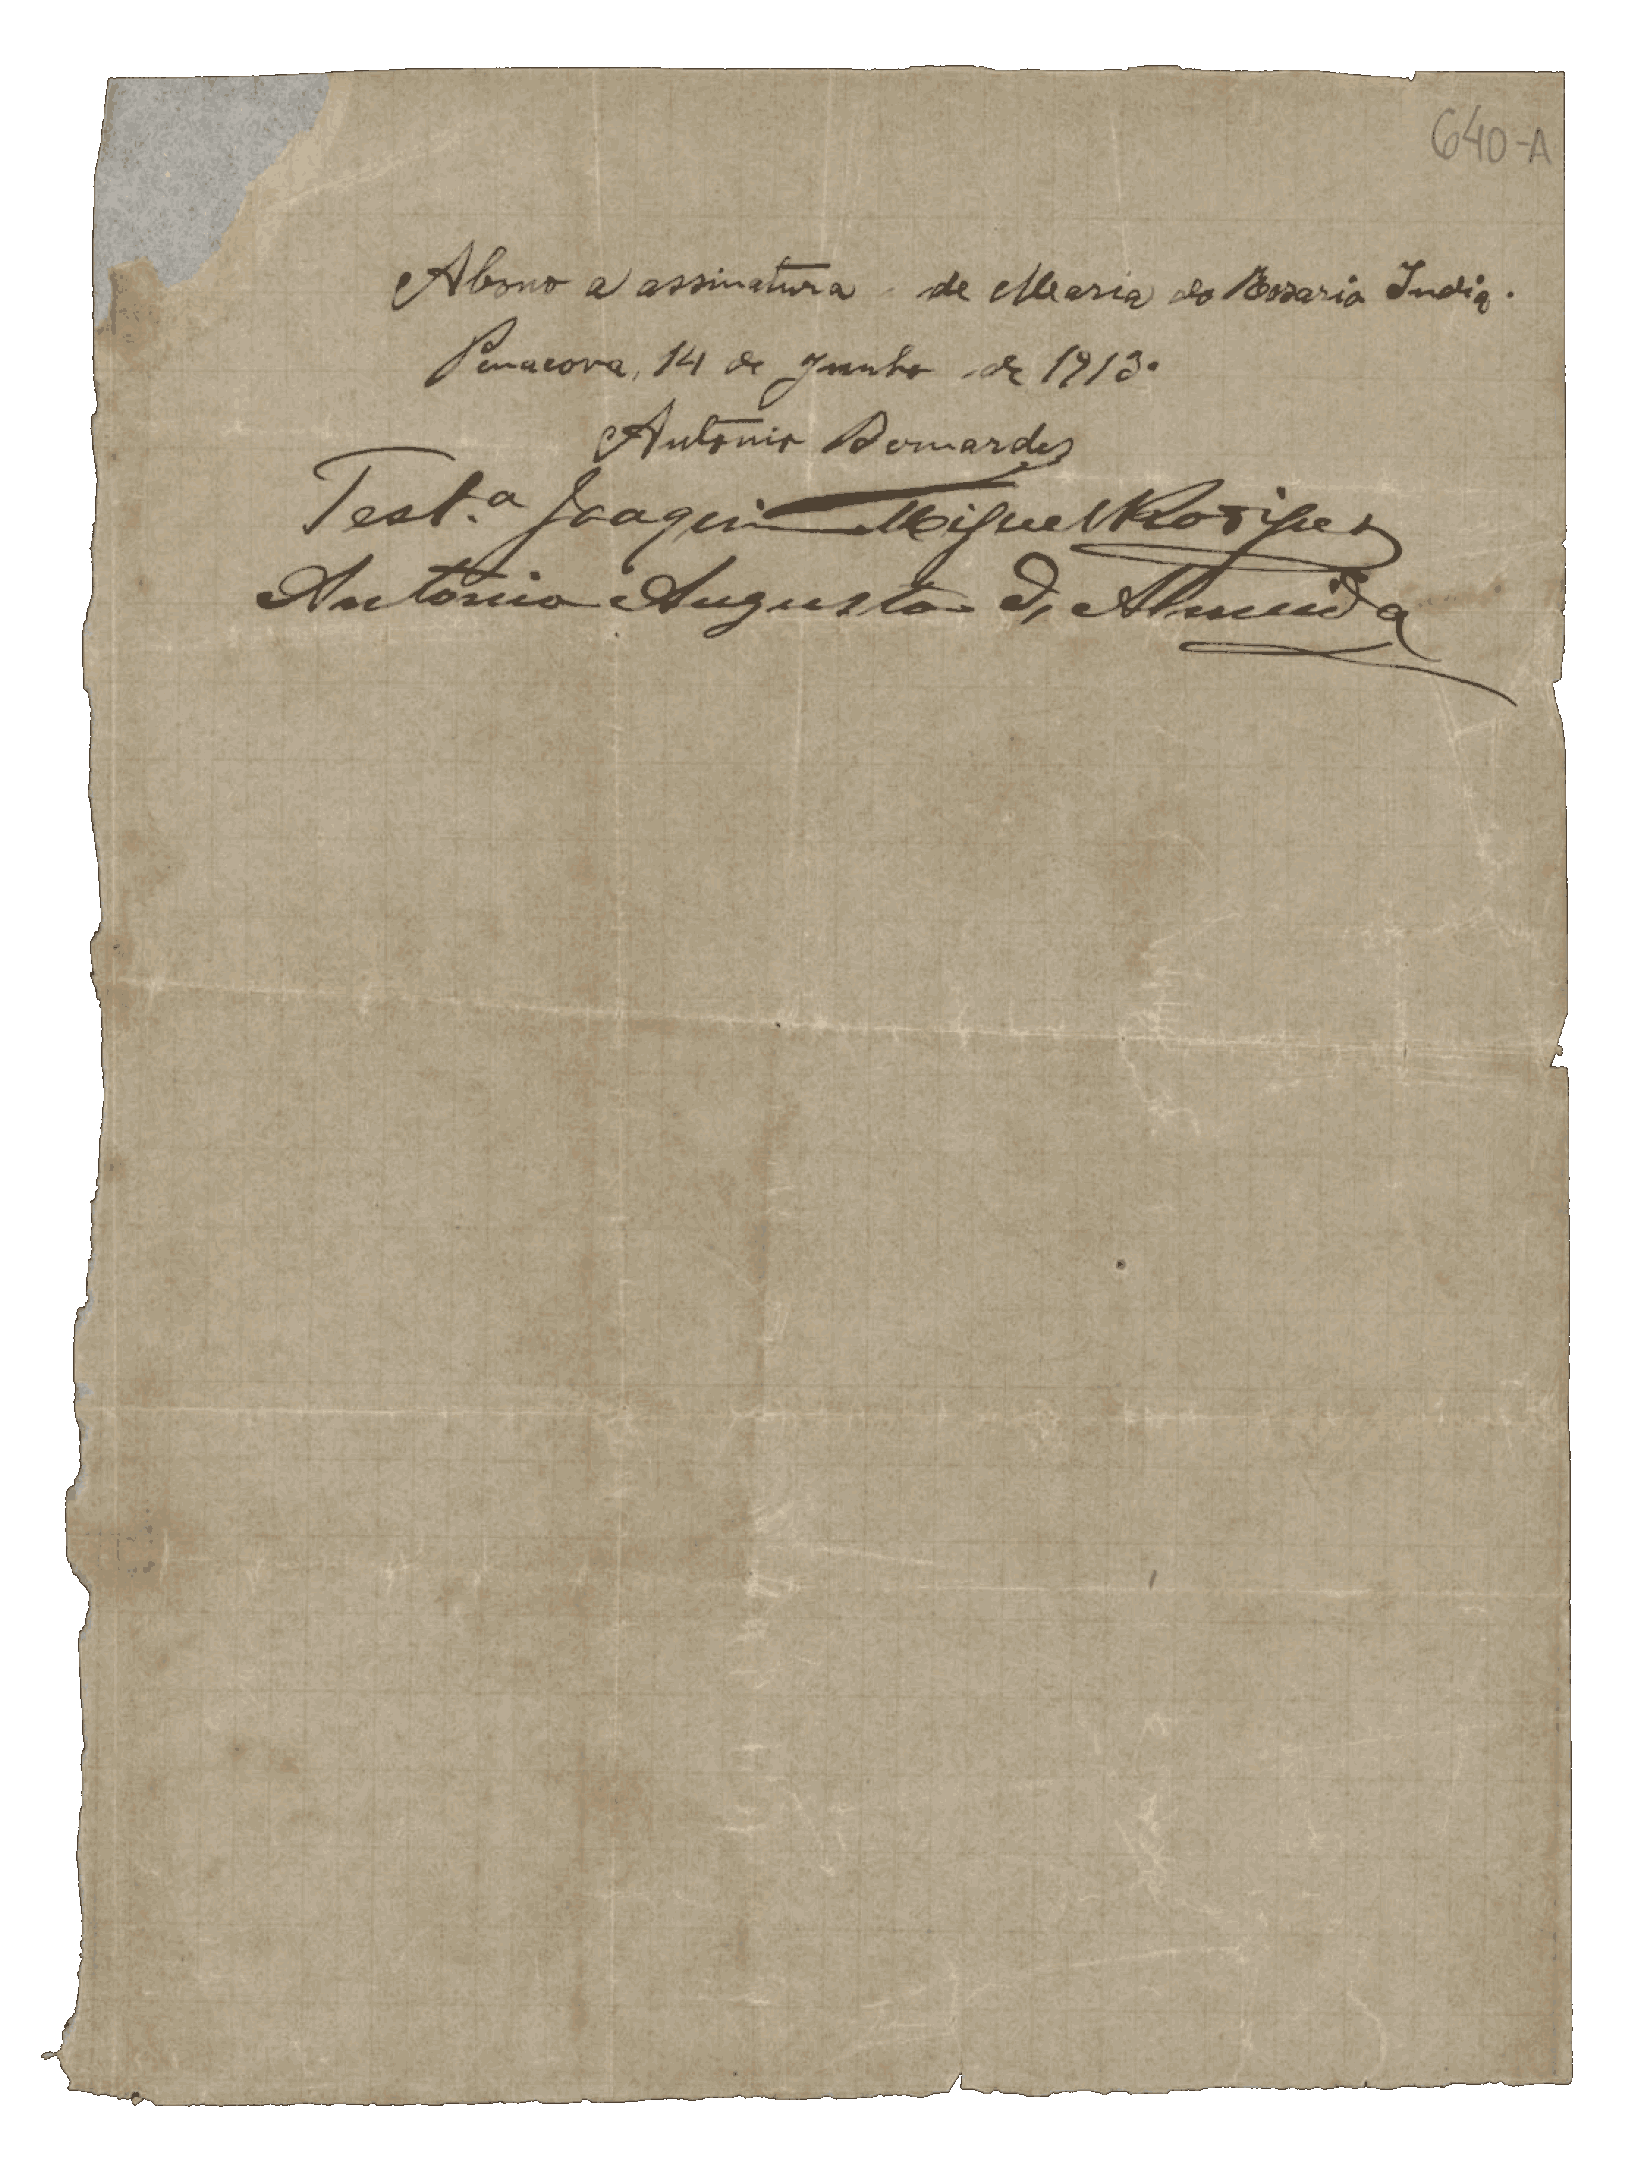 640-A
Abono a assinatura de Maria do Rosario India.
Penacova, 14 de Junho de 1913.
Antonio Bernardes
Test.a Joaquim Miguel Rodigues
Antonio Augusto d'Almeida